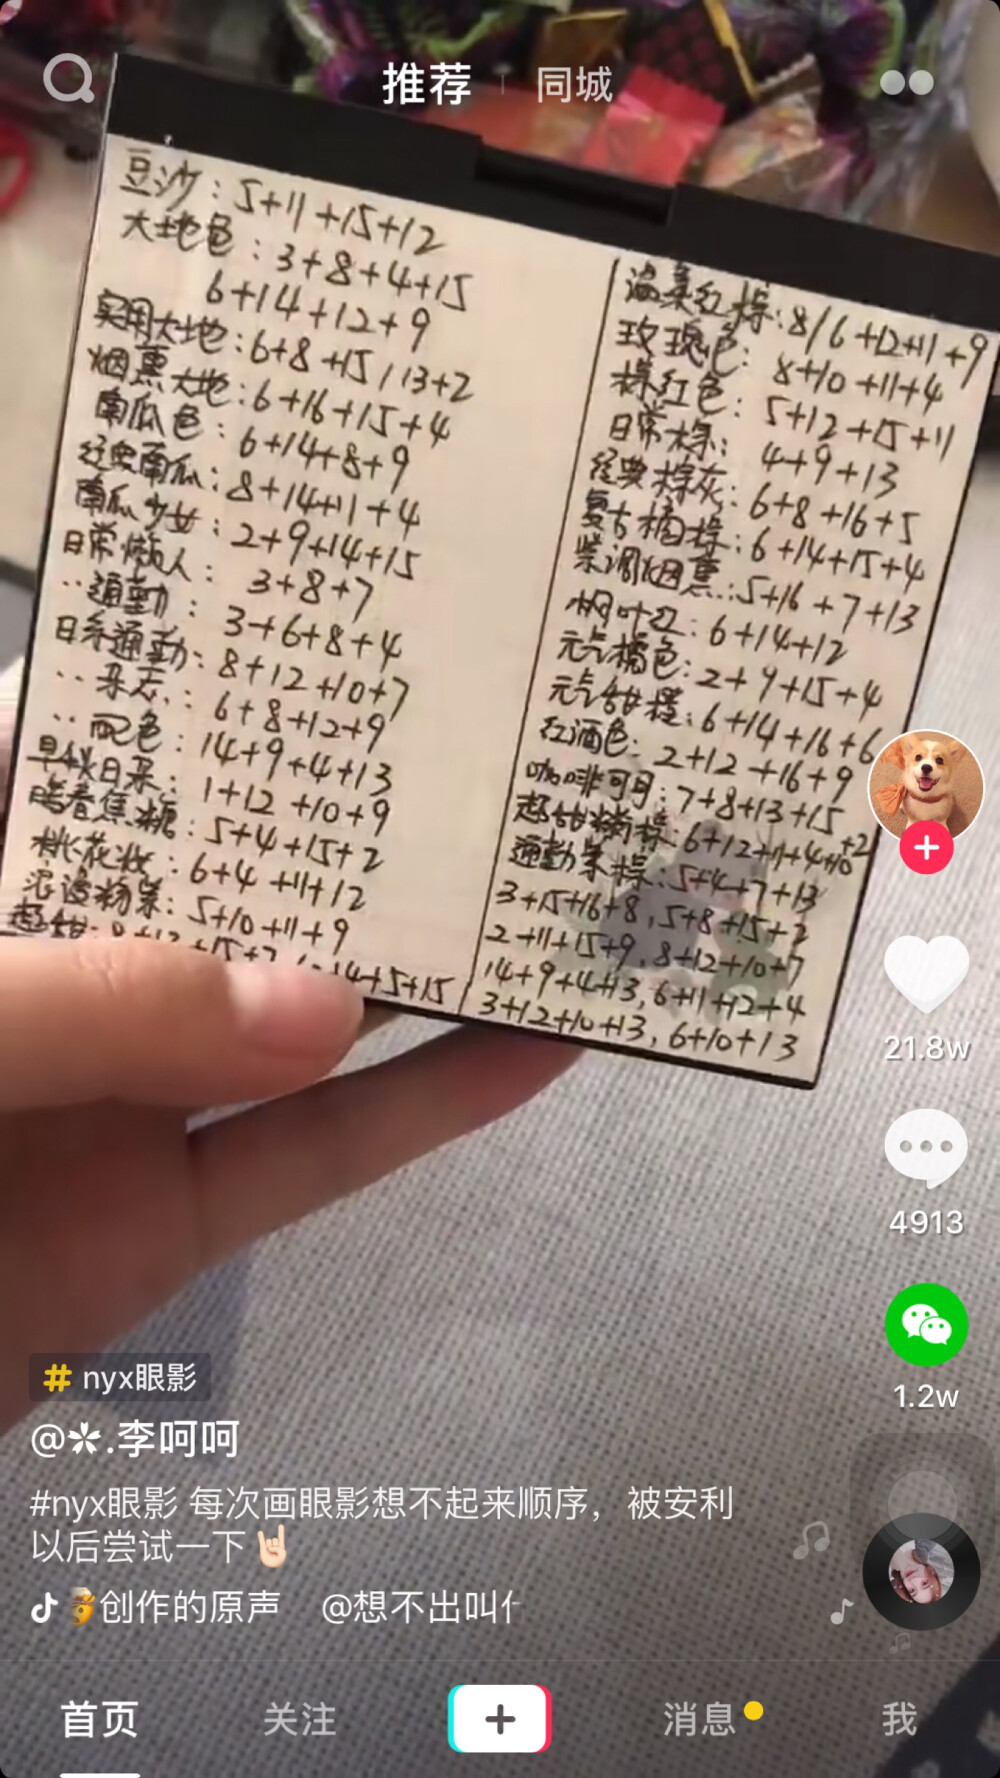 推荐
同城
豆沙：5+11+15+12
大地色：3+8+4+15
6+14+12+9
实用大地：6+8+15/13+2
烟熏大地：6+16+15+4
南瓜色：6+14+8+9
经典南瓜：8+14+11+4
南瓜少女：2+9+14+15
日常懒人：3+8+7
··通勤：3+6+8+4
日系通勤：8+12+10+7
··杂志：6+8+12+9
··配色：14+9+4+13
早秋日杂：1+12+10+9
暗香焦糖：5+4+15+2
桃花妆：6+4+11+12
浪漫粉紫：5+10+11+9
超甜：8+12+15+7
14+5+15
温柔红棕：8/6+12+11+9
玫瑰色：8+10+11+4
棕红色：5+12+15+11
日常棕：4+9+13
经典棕灰：6+8+16+5
复古橘棕：6+14+15+4
紫调烟熏：5+16+7+13
枫叶红：6+14+12
元气橘色：2+9+15+4
元气甜橙：6+14+16+6
红酒色：2+12+16+9
咖啡可可：7+8+13+15
超甜粉棕：6+12+11+4+10+2
通勤紫棕：5+4+7+13
3+15+16+8，5+8+15+2
2+11+15+9，8+12+10+7
14+9+4+13，6+11+12+4
3+12+10+13，6+10+13
21.8w
4913
1.2w
# nyx眼影
@.李呵呵
#nyx眼影 每次画眼影想不起来顺序，被安利
以后尝试一下
创作的原声 @想不出叫什
首页
关注
消息
我